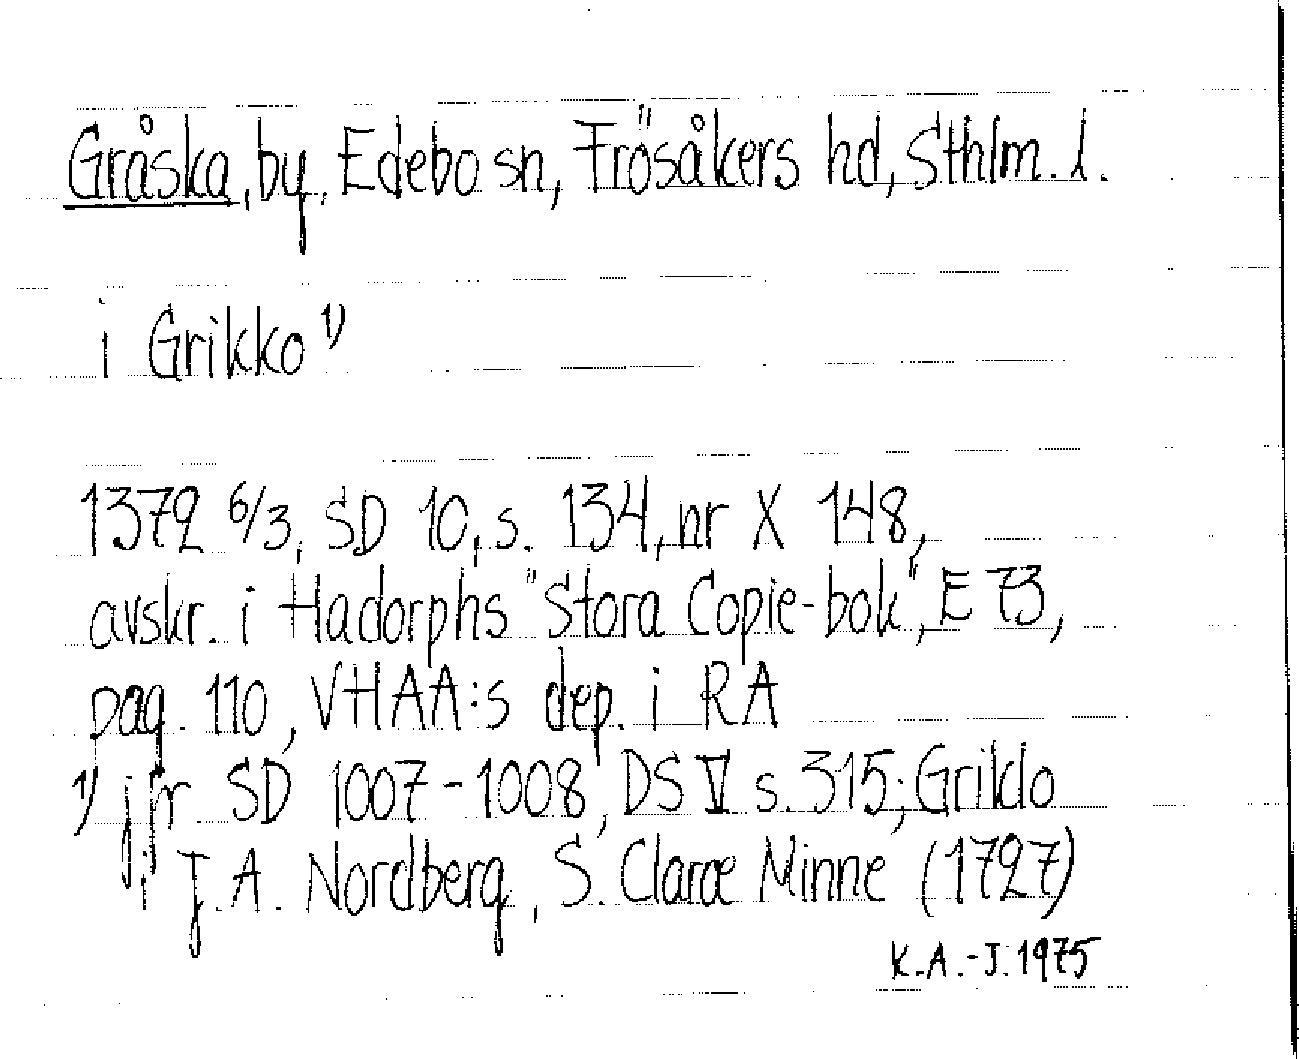 Gråska, by, Edebo sn, Frösåkers hd, Sthlm. l.
i Grikko 1)
1372 6/3, SD 10, s. 134, nr X 148,
avskr. i Hadorphs "Stora Copie-bok", E 73,
pag. 110, VHAA:s dep. i RA
1) jfr SD 1007-1008, DS V s. 315; Griklo
i J. A. Nordberg, S. Claræ Minne (1727)
K.A.-J. 1975